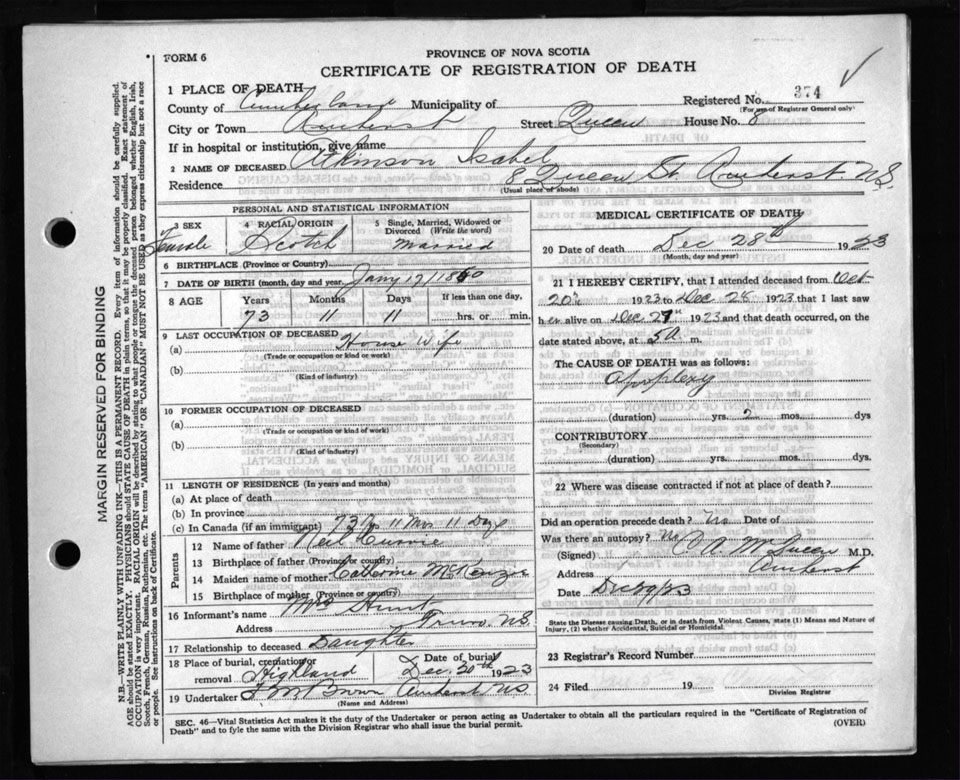 FORM 6
PROVINCE OF NOVA SCOTIA
CERTIFICATE OF REGISTRATION OF DEATH
1 PLACE OF DEATH
Registered No. 374
(For use of Registrar General only)
County of Cumberland Municipality of
City or Town Amherst Street Queen House No. 8
If in hospital or institution, give name
2 NAME OF DECEASED Atkinson Isabel
Residence 8 Queen St. Amherst N.S.
(Usual place of abode)
PERSONAL AND STATISTICAL INFORMATION
3 SEX 4 RACIAL ORIGIN 5 Single, Married, Widowed or Divorced (Write the word)
Female Scotch Married
6 BIRTHPLACE (Province or Country)
7 DATE OF BIRTH (month, day and year) Jany 17/1850
8 AGE Years Months Days If less than one day,
73 11 11 hrs. or min.
9 LAST OCCUPATION OF DECEASED
(a) House Wife
(Trade or occupation or kind or work)
(b)
(Kind of industry)
10 FORMER OCCUPATION OF DECEASED
(a)
(Trade or occupation or kind of work)
(b)
(Kind of industry)
11 LENGTH OF RESIDENCE (In years and months)
(a) At place of death
(b) In province
(c) In Canada (if an immigrant) 73 yrs 11 Mos 11 Days
Parents
12 Name of father Neil Currie
13 Birthplace of father (Province or country)
14 Maiden name of mother Catherine McKenzie
15 Birthplace of mother (Province or country)
16 Informant's name Mrs Hunt
Address Truro N.S.
17 Relationship to deceased Daughter
18 Place of burial, cremation or removal Highland
Date of burial Dec. 30th 1923
19 Undertaker F M Brown Amherst NS
(Name and Address)
MEDICAL CERTIFICATE OF DEATH
20 Date of death Dec 28th 1923
(Month, day and year)
21 I HEREBY CERTIFY, that I attended deceased from Oct
20th 1923 to Dec 28 1923 that I last saw
her alive on Dec 27th 1923 and that death occurred, on the
date stated above, at 5 a m.
The CAUSE OF DEATH was as follows:
Apoplexy
(duration) yrs. 2 mos. dys
CONTRIBUTORY
(Secondary)
(duration) yrs. mos. dys.
22 Where was disease contracted if not at place of death?
Did an operation precede death? No Date of
Was there an autopsy? No
(Signed) C A McQueen M.D.
Address Amherst
Date Dec 29/23
State the Disease causing Death, or in death from Violent Causes, state (1) Means and Nature of Injury, (2) whether Accidental, Suicidal or Homicidal.
23 Registrar's Record Number
24 Filed 19
Division Registrar
SEC. 46—Vital Statistics Act makes it the duty of the Undertaker or person acting as Undertaker to obtain all the particulars required in the "Certificate of Registration of
Death" and to fyle the same with the Division Registrar who shall issue the burial permit.
(OVER)
MARGIN RESERVED FOR BINDING
N.B.—WRITE PLAINLY WITH UNFADING INK—THIS IS A PERMANENT RECORD. Every item of information should be carefully supplied.
AGE should be stated EXACTLY. PHYSICIANS should STATE CAUSE OF DEATH in plain terms, so that it may be properly classified. Exact statement of
OCCUPATION is very important. RACIAL ORIGIN will be described by stating to what people or tongue the deceased person belonged whether English, Irish,
Scotch, French, German, Russian, Ruthenian, etc. The terms "AMERICAN" OR "CANADIAN" MUST NOT BE USED as they express citizenship but not a race
or people. See instructions on back of Certificate.